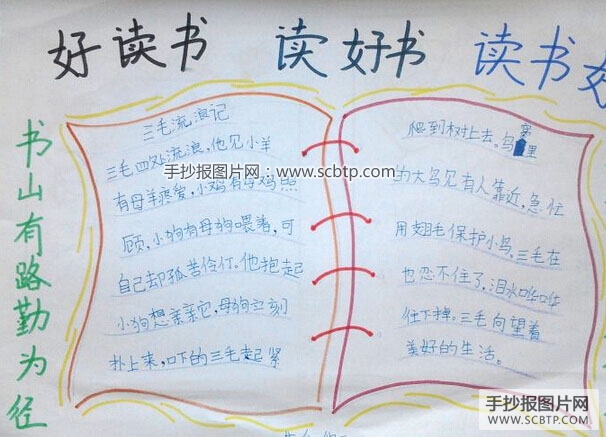 好读书 读好书 读书好
书山有路勤为径
三毛流浪记
三毛四处流浪,他见小羊
有母羊疼爱,小鸡有母鸡照
顾,小狗有母狗喂着,可
自己却孤苦伶仃。他抱起
小狗想亲亲它,母狗立刻
扑上来,吓的三毛赶紧
爬到树上去。鸟窝里
的大鸟见有人靠近,急忙
用翅毛保护小鸟,三毛在
也忍不住了,泪水哗哗
往下掉。三毛向望着
美好的生活。
手抄报图片网:www.scbtp.com
手抄报图片网
WWW.SCBTP.COM